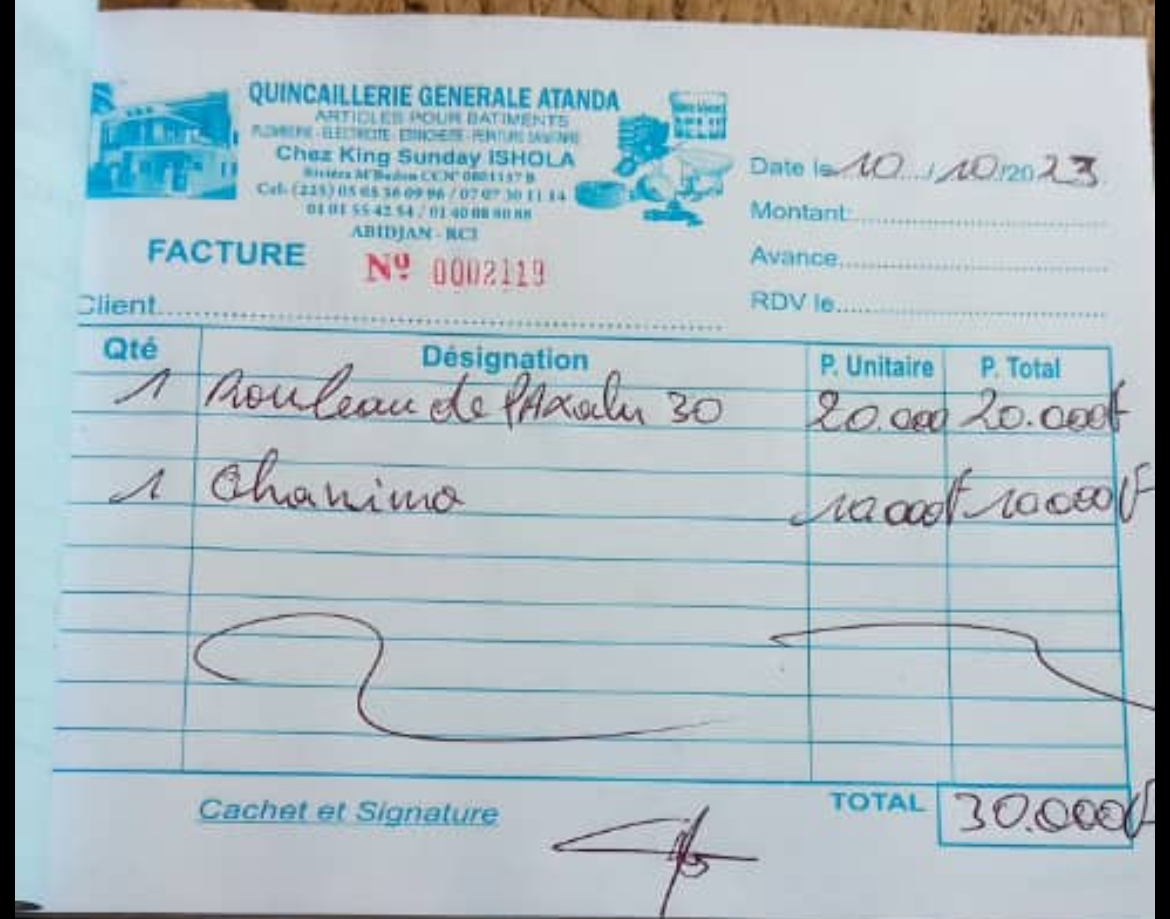 QUINCAILLERIE GENERALE ATANDA
ARTICLES POUR BATIMENTS
PLOMBERIE - ELECTRICITE - ETANCHEITE - PEINTURE SANITAIRE
Chez King Sunday ISHOLA
Riviéra M'Badon CCN° 0801137 B
Cel: (225) 05 05 56 09 96 / 07 07 30 11 14
01 01 55 42 54 / 01 40 08 80 88
ABIDJAN - RCI
FACTURE
Nº 0002119
Date le 10 / 10 /20 23
Montant:
Avance
RDV le
Client
Qté Désignation P. Unitaire P. Total
1 Rouleau de PAxalu 30 20.000 20.000F
1 Chanimo 10000F 10000F
Cachet et Signature
TOTAL 30.000F